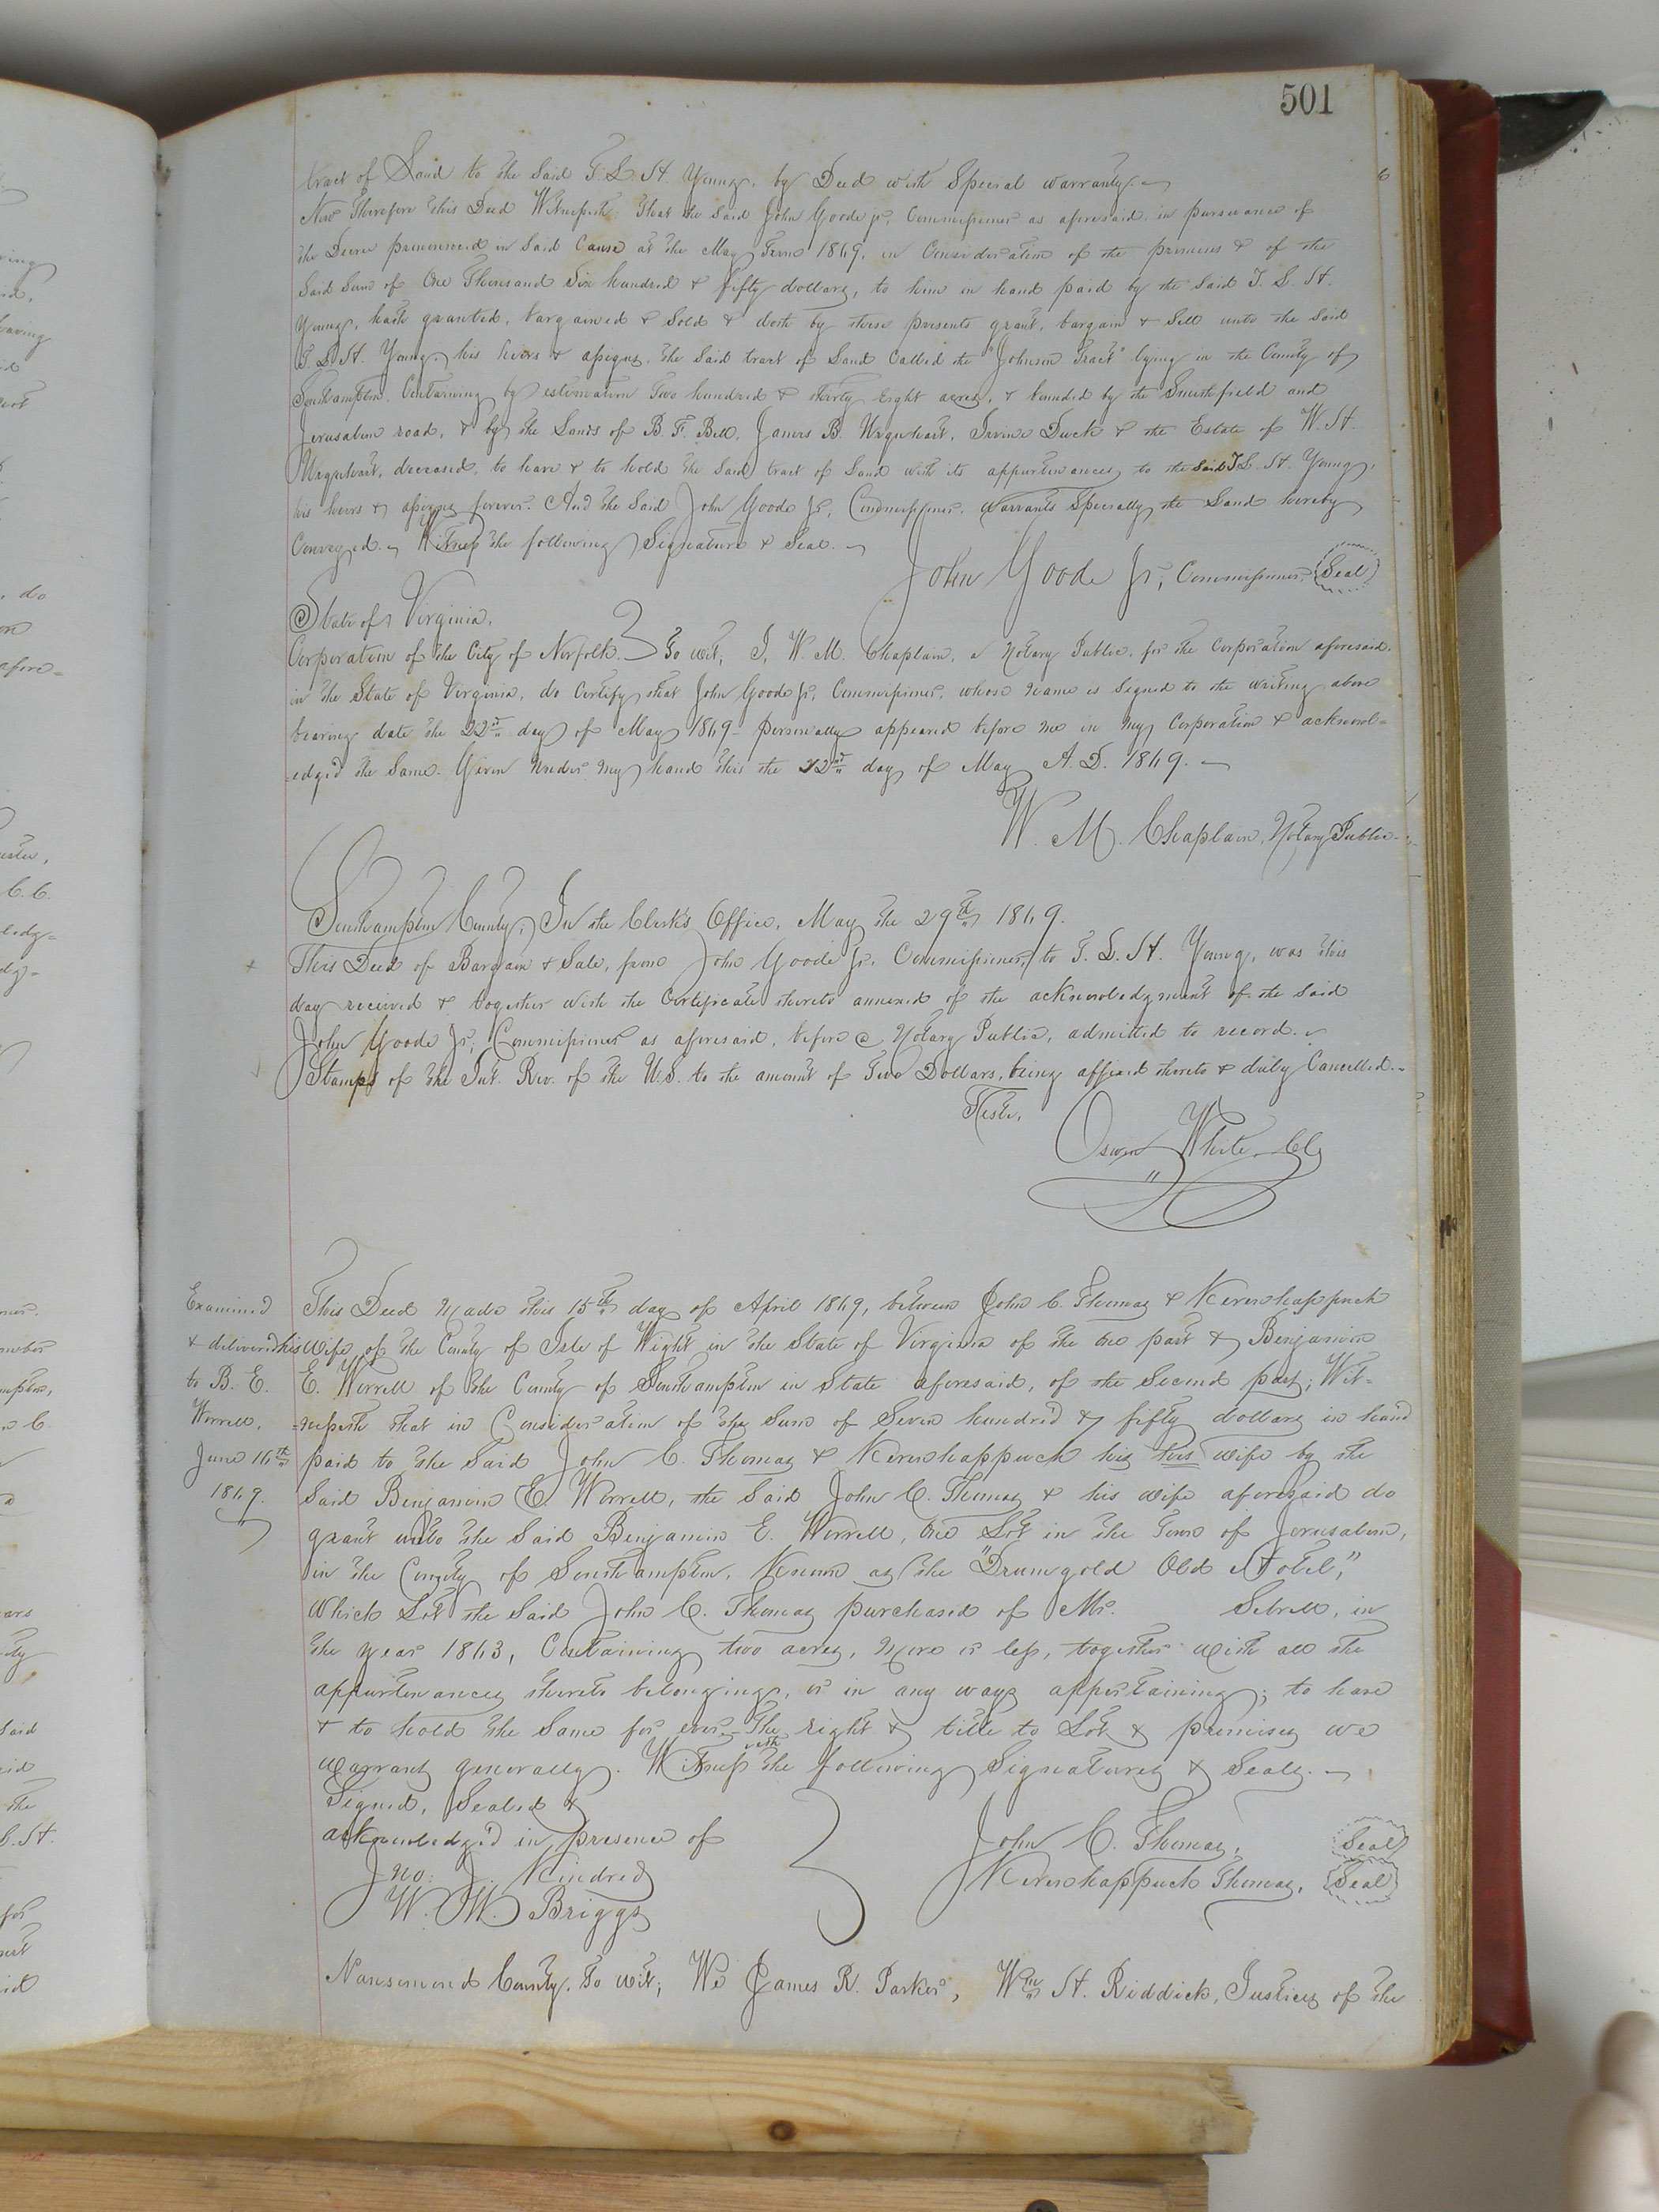 501
tract of Land to the Said T. L. H. Young, by Deed with Special warranty.
Now Therefore this Deed Witnesseth: That the Said John Goode jr, Commissioner as aforesaid, in pursuance of
the Decree pronounced in Said Cause at the May Term 1869, in Consideration of the premises & of the
Said Sum of One Thousand Six hundred & fifty dollars, to him in hand paid by the Said T. L. H.
Young, hath granted, bargained & Sold & doth by these presents grant, bargain & Sell unto the Said
T. L. H. Young, his heirs & assigns, the Said tract of Land Called the "Johnson Tract" lying in the County of
Southampton, Containing by estimation Two hundred & thirty eight acres, & bounded by the Smithfield and
Jerusalem road, & by the Lands of B. F. Bell, James B. Urquhart, Duck & the Estate of W. H.
Urquhart, deceased, to have & to hold the Said tract of Land with its appurtenances to the Said T. L. H. Young,
his heirs & assigns forever. And the Said John Goode Jr, Commissioner, warrants Specially the Land hereby
Conveyed. Witness the following Signature & Seal.
John Goode Jr, Commissioner, (Seal)
State of Virginia.
Corporation of the City of Norfolk. } To wit; I, W. M. Chaplain, a Notary Public, for the Corporation aforesaid,
in the State of Virginia, do Certify that John Goode Jr, Commissioner, whose name is Signed to the writing above
bearing date the 22d day of May 1869 personally appeared before me in my Corporation & acknowl=
edged the Same. Given under my hand this the 22d day of May A. D. 1869.
W. M. Chaplain, Notary Public
Southampton County; In the Clerk's Office, May the 29th 1869.
This Deed of Bargain & Sale, from John Goode Jr, Commissioner, to T. L. H. Young, was this
day received & together with the Certificate thereto annexed of the acknowledgment of the Said
John Goode Jr, Commissioner as aforesaid, before a Notary Public, admitted to record.
Stamps of the Int. Rev. of the U.S. to the amount of Two Dollars, being affixed thereto & duly Cancelled.
Teste,
White, Clk
Examined
& delivered
to B. E.
Worrell,
June 16th
1869.
This Deed made this 15th day of April 1869, between John C. Thomas & Kerenhappuch
his wife, of the County of Isle of Wight in the State of Virginia of the one part & Benjamin
E. Worrell of the County of Southampton in State aforesaid, of the Second part; Wit=
=nesseth that in Consideration of the Sum of Seven hundred & fifty dollars in hand
paid to the Said John C. Thomas & Kerenhappuch his this wife by the
Said Benjamin E. Worrell, the Said John C. Thomas & his wife aforesaid do
grant unto the Said Benjamin E. Worrell, one Lot in the Town of Jerusalem,
in the County of Southampton, Known as the "Drumgold Old Hotel,"
Which Lot the Said John C. Thomas purchased of Mr. Sebrell, in
the year 1863, Containing two acres, more or less, together with all the
appurtenances thereto belonging, or in any ways appertaining; to have
& to hold the Same for ever. The right & title to Lot & premises we
warrant generally. Witness with the following Signatures & Seals.
Signed, Sealed &
acknowledged in presence of
Jno. J. Kindred
W. W. Briggs
John C. Thomas, (Seal)
Kerenhappuch Thomas, (Seal)
Nansemond County, To wit; We James R. Parker, Wm H. Riddick, Justices of the